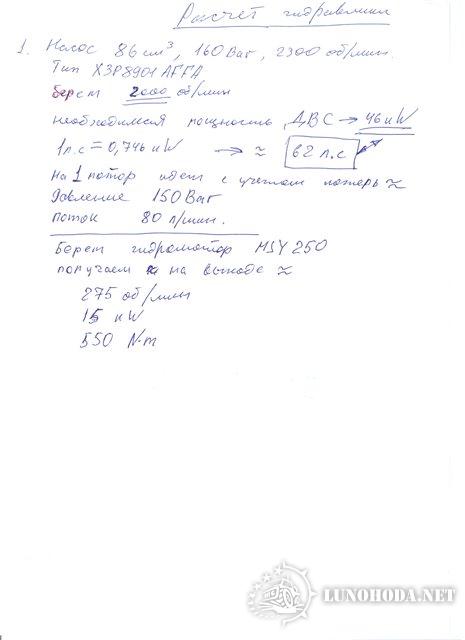 Расчёт гидравлики
1. Насос 86 cm³, 160 Bar, 2300 об/мин.
Тип X3P8901 AFFA
берем 2000 об/мин
необходимая мощность ДВС → 46 кW
1 л.с = 0,746 кW → ≈ 62 л.с
на 1 мотор идет с учетом потерь ≈
Давление 150 Bar
поток 80 л/мин.
Берем гидромотор MSY 250
получаем на выходе ≈
275 об/мин
15 кW
550 N·m
LUNOHODA.NET